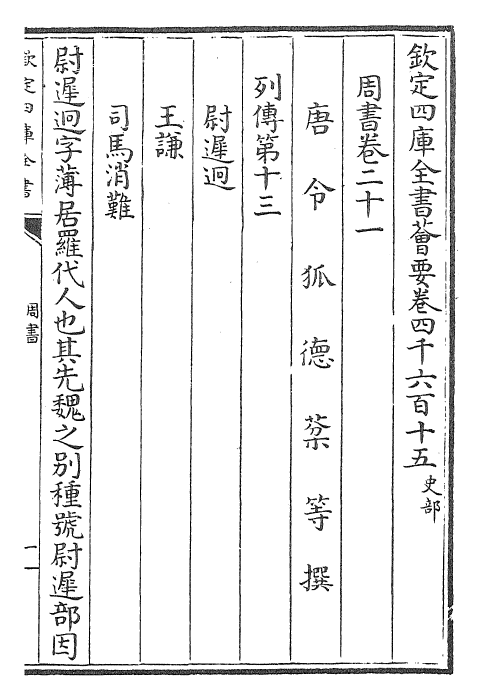 欽定四庫全書薈要卷四千六百十五 史部
周書卷二十一
唐令狐德棻等撰
列傳第十三
尉遲迥
王謙
司馬消難
尉遲迥字薄居羅代人也其先魏之别種號尉遲部因
欽定四庫全書
周書
一